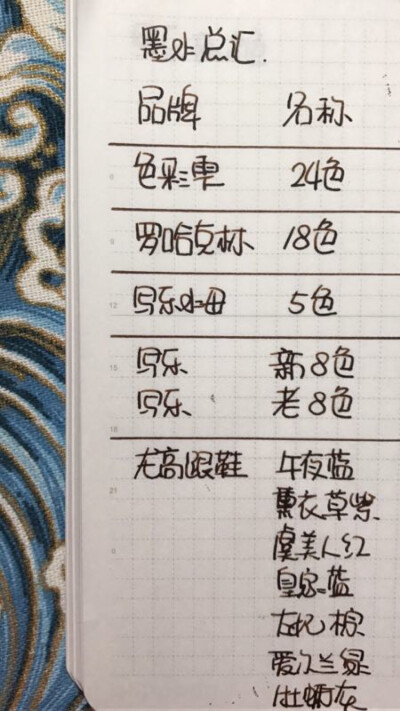 墨水总汇.
品牌 名称
色彩雫 24色
罗哈克林 18色
12
写乐水母 5色
15
写乐 新8色
写乐 老8色
18
大高跟鞋 午夜蓝
21
薰衣草紫
虞美人红
皇家蓝
太妃棕
爱尔兰绿
牡蛎灰